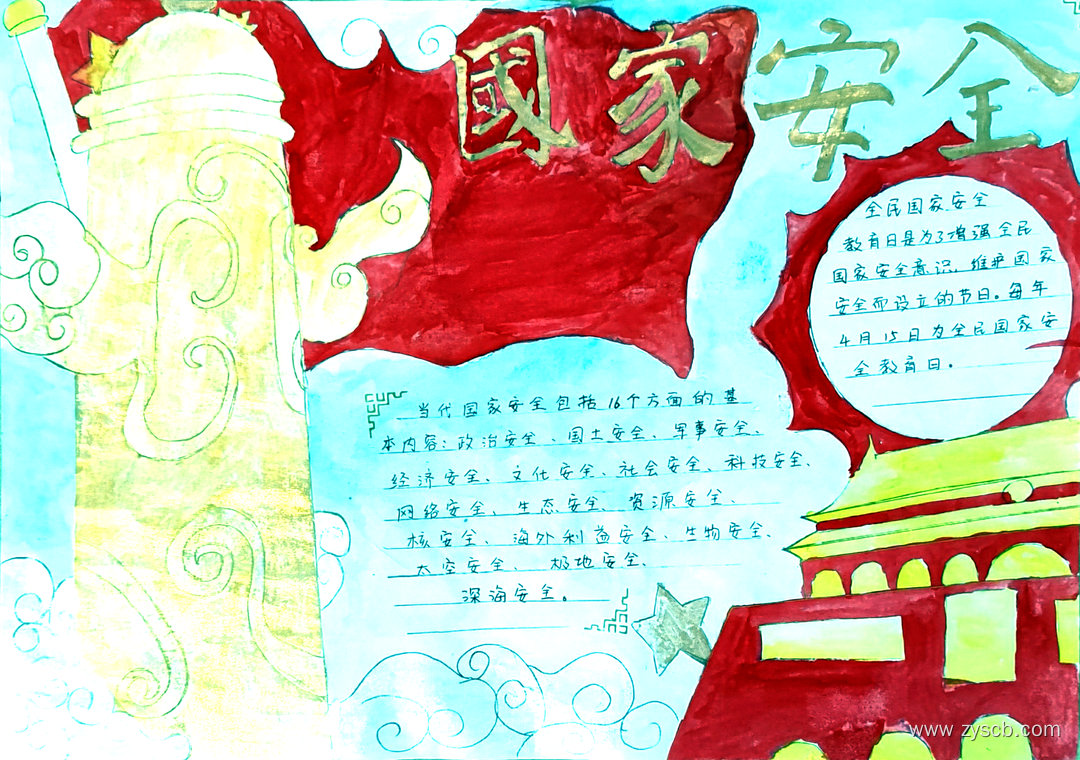 國家安全
全民国家安全
教育日是为了增强全民
国家安全意识，维护国家
安全而设立的节日。每年
4月15日为全民国家安
全教育日。
当代国家安全包括16个方面的基
本内容：政治安全、国土安全、军事安全、
经济安全、文化安全、社会安全、科技安全、
网络安全、生态安全、资源安全、
核安全、海外利益安全、生物安全、
太空安全、极地安全、
深海安全。
www.zyscb.com